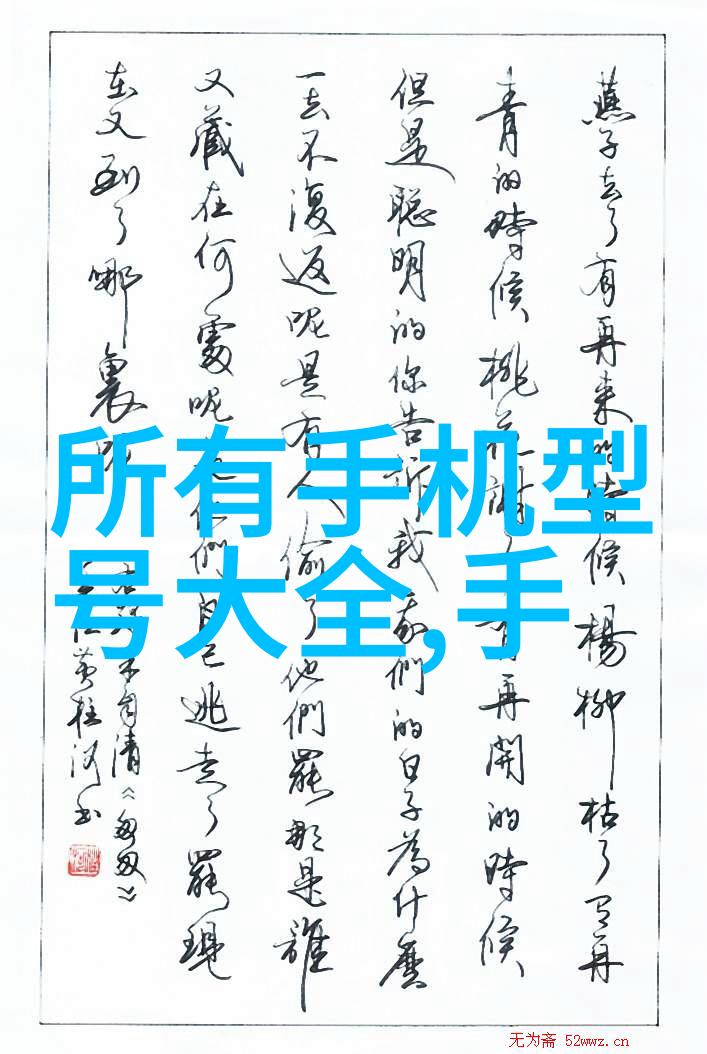 燕子去了有再来的時候楊柳枯了有再
青的時候桃花謝了有再開的時候
但是聪明的你告訴我我們的日子為什麼
一去不復返呢是有人偷了他們罷那是誰
又藏在何處呢是他們自己逃走了罷現
在又到了哪裏呢
朱自清《匆匆》
所有手机型
号大全,手
无为斋 52wwz.cn